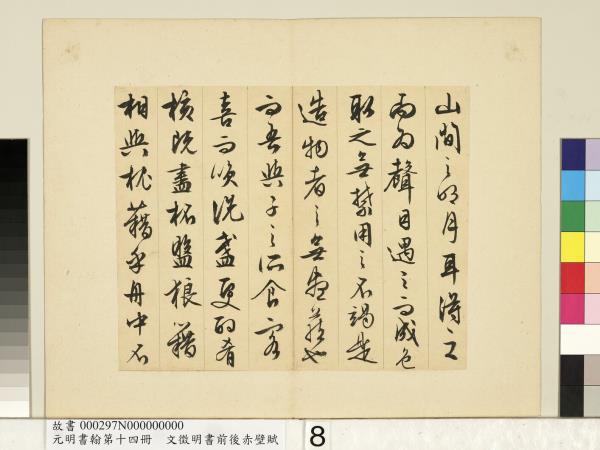 山間之明月耳得之
而為聲目遇之而成色
取之無禁用之不竭是
造物者之無盡藏也
而吾與子之所食客
喜而笑洗盞更酌肴
核既盡杯盤狼籍
相與枕藉乎舟中不
故書 000297N000000000
元明書翰第十四冊 文徵明書前後赤壁賦
8